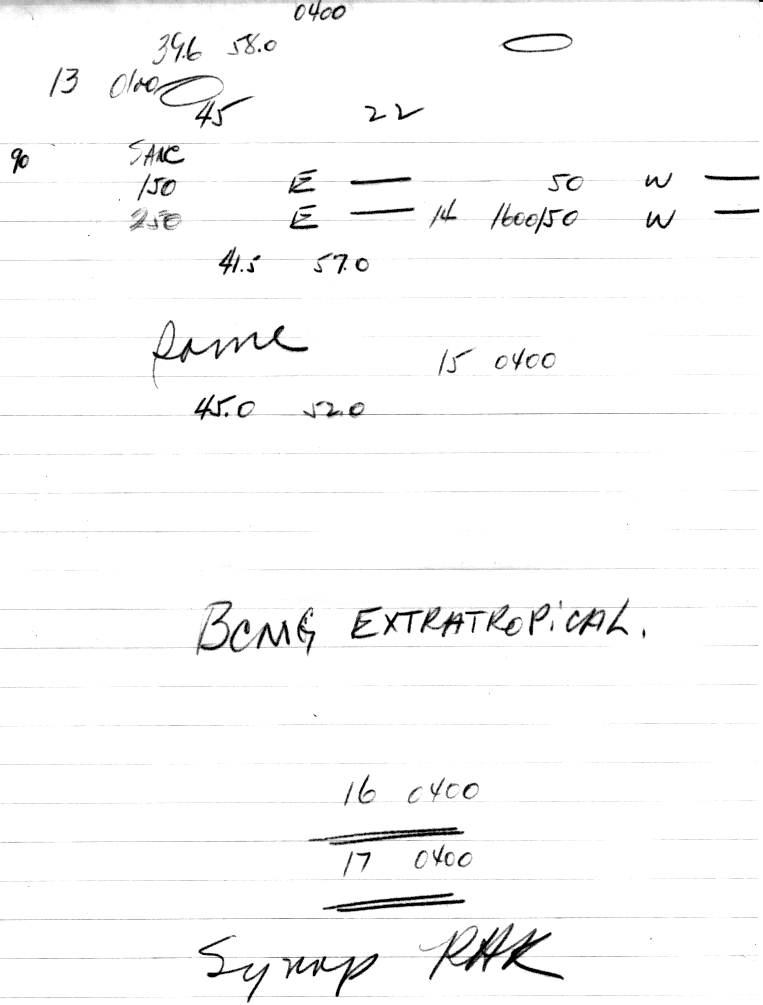 0400
39.6 58.0
13 0100
45 22
90 SAME
150 E — 50 W —
250 E — 14 1600/50 W —
41.5 57.0
Same
15 0400
45.0 52.0
BCMG EXTRATROPICAL.
16 0400
17 0400
Synop RHK